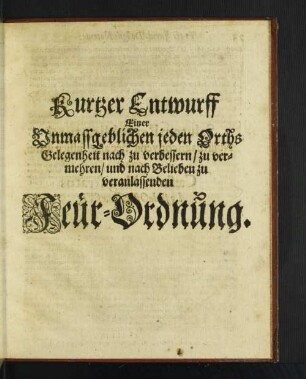 Kurtzer Entwurff
Einer
Unmassgeblichen jeden Orths
Gelegenheit nach zu verbessern/ zu ver-
mehren/ und nach Belieben zu
veranlassenden
Feür-Ordnung.